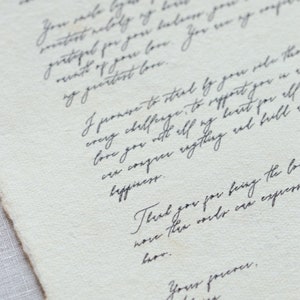 Your smile lights
sweetest melody my heart
grateful for your kindness, your
warmth of your love. You are my
my greatest love.
I promise to stand by your side
every challenge, to support you in
love you with all my heart for all
can conquer anything and build
happiness.
Thank you for being the
more than words can express
love.
Yours forever,